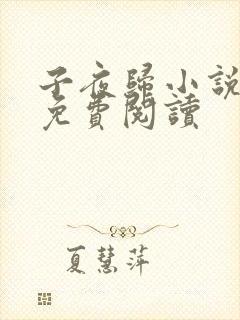 子夜歸小說
免費閱讀
夏慧萍